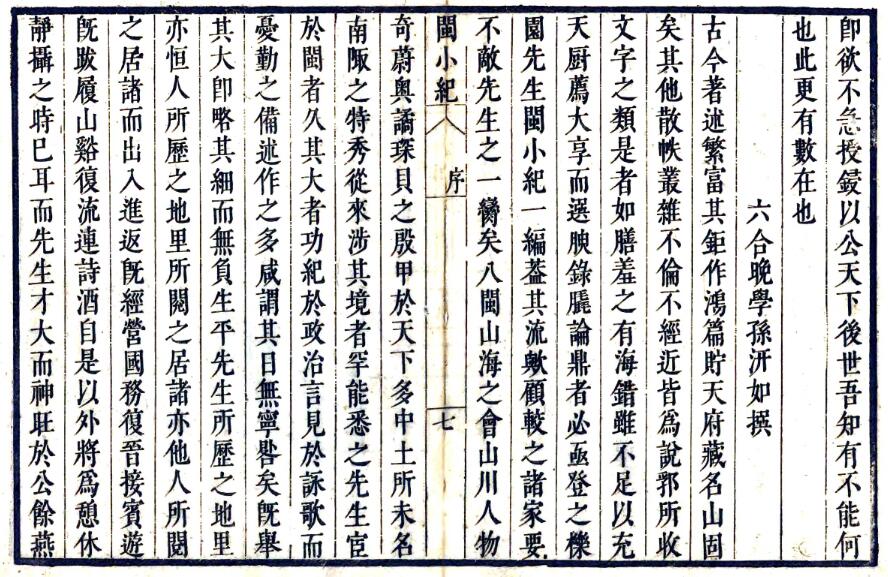 卽欲不急授鋟以公天下後世吾知有不能何
也此更有數在也
六合晚學孫汧如撰
古今著述繁富其鉅作鴻篇貯天府藏名山固
矣其他散帙叢雜不倫不經近皆爲說郛所收
文字之類是者如膳羞之有海錯雖不足以充
天厨薦大享而選腴錄毲論鼎者必亟登之櫟
園先生閩小紀一編葢其流歟顧較之諸家要
不敵先生之一臠矣八閩山海之會山川人物
閩小紀
序
七
奇蔚奥譎琛貝之殷甲於天下多中土所未名
南陬之特秀從來涉其境者罕能悉之先生宦
於閩者久其大者功紀於政治言見於詠歌而
憂勤之備述作之多咸謂其日無寧晷矣旣舉
其大卽略其細而無負生平先生所歷之地里
亦恒人所歷之地里所閱之居諸亦他人所閱
之居諸而出入進返旣經營國務復晉接賓遊
旣跋履山谿復流連詩酒自是以外將爲憩休
靜攝之時已耳而先生才大而神旺於公餘燕